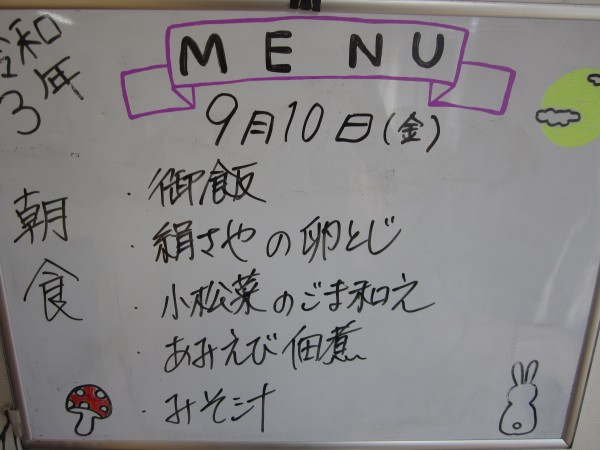 令和
3年
MENU
9月10日(金)
朝食
・御飯
・絹さやの卵とじ
・小松菜のごま和え
・あみえび佃煮
・みそ汁